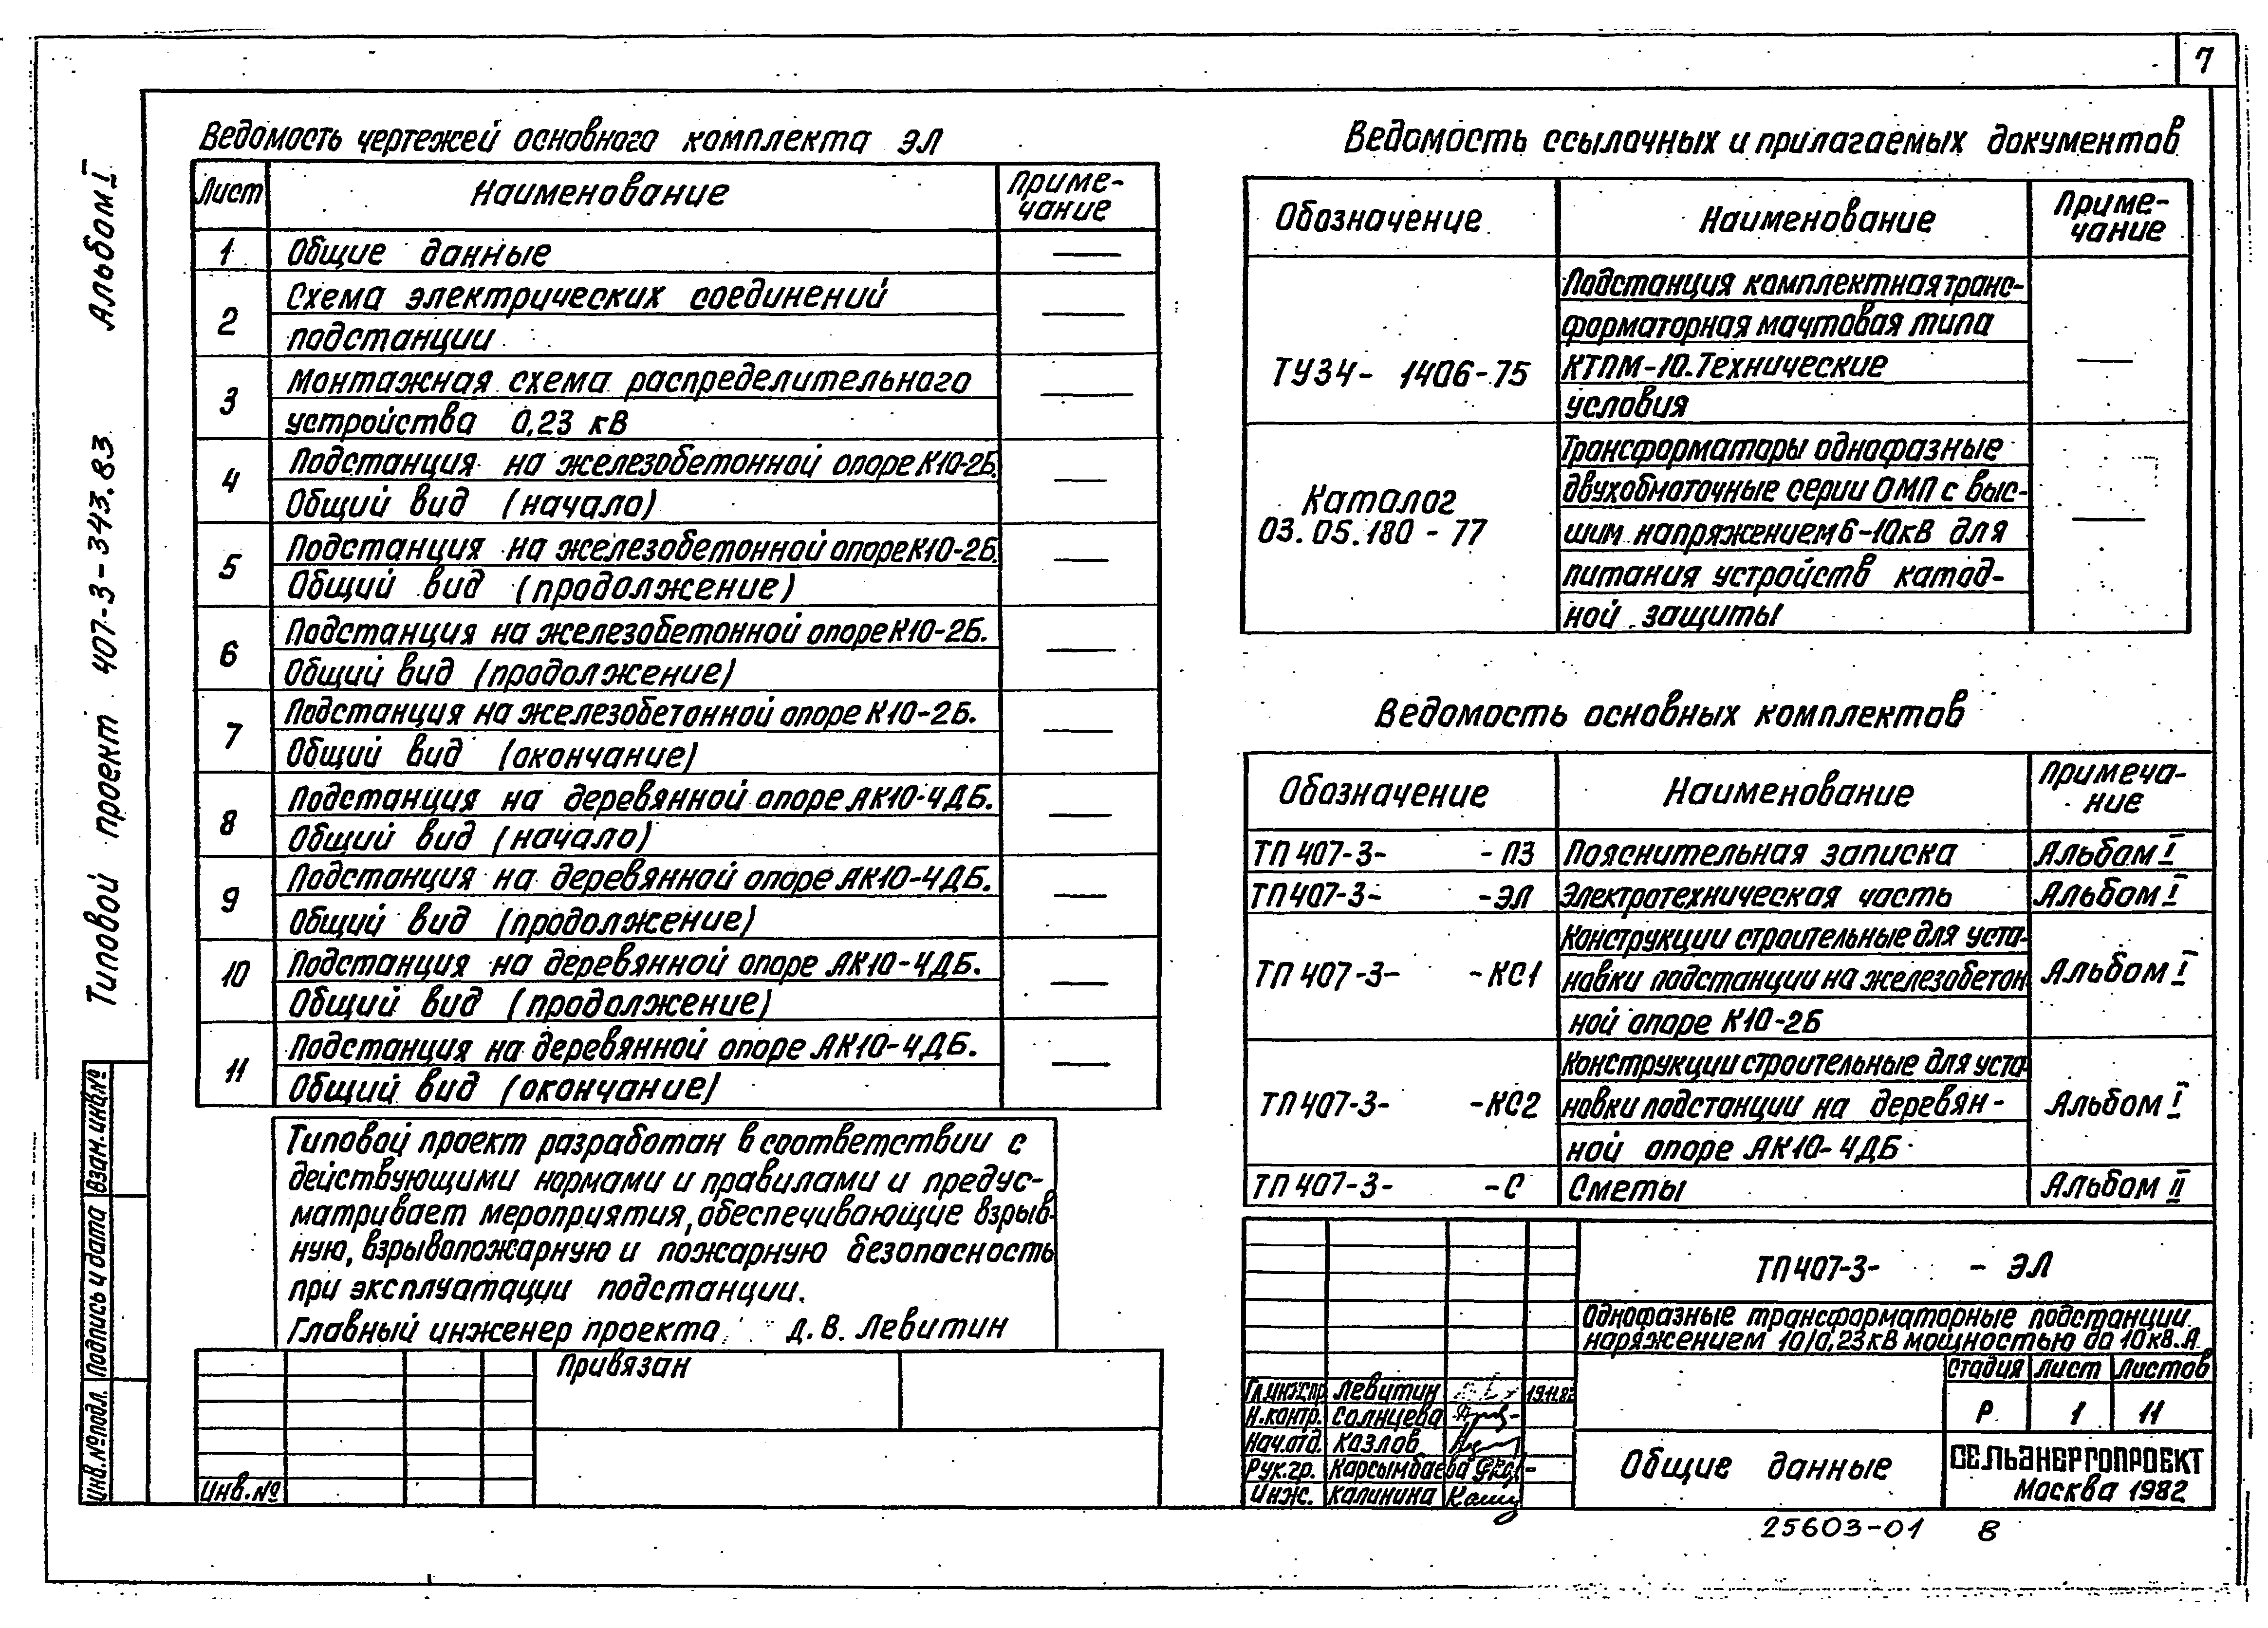 7
Типовой проект 407-3-343.83 Альбом I
Ведомость чертежей основного комплекта ЭЛ
Лист Наименование Приме-
чание
1 Общие данные —
2 Схема электрических соединений
подстанции —
3 Монтажная схема распределительного
устройства 0,23 кВ —
4 Подстанция на железобетонной опоре К10-2Б.
Общий вид (начало) —
5 Подстанция на железобетонной опоре К10-2Б.
Общий вид (продолжение) —
6 Подстанция на железобетонной опоре К10-2Б.
Общий вид (продолжение) —
7 Подстанция на железобетонной опоре К10-2Б.
Общий вид (окончание) —
8 Подстанция на деревянной опоре АК10-4ДБ.
Общий вид (начало) —
9 Подстанция на деревянной опоре АК10-4ДБ.
Общий вид (продолжение) —
10 Подстанция на деревянной опоре АК10-4ДБ.
Общий вид (продолжение) —
11 Подстанция на деревянной опоре АК10-4ДБ.
Общий вид (окончание) —
Типовой проект разработан в соответствии с
действующими нормами и правилами и предус-
матривает мероприятия, обеспечивающие взрыв-
ную, взрывопожарную и пожарную безопасность
при эксплуатации подстанции.
Главный инженер проекта Д.В. Левитин
Привязан
Инв.№
Взам.инв.№
Подпись и дата
Инв.№подл.
Ведомость ссылочных и прилагаемых документов
Обозначение Наименование Приме-
чание
ТУ34- 1406-75
Подстанция комплектная транс-
форматорная мачтовая типа
КТПМ-10. Технические
условия —
Каталог
03.05.180-77
Трансформаторы однофазные
двухобмоточные серии ОМП с выс-
шим напряжением 6-10кВ для
питания устройств катод-
ной защиты —
Ведомость основных комплектов
Обозначение Наименование Примеча-
ние
ТП 407-3- -ПЗ Пояснительная записка Альбом I
ТП 407-3- -ЭЛ Электротехническая часть Альбом I
ТП 407-3- -КС1 Конструкции строительные для уста-
новки подстанции на железобетон
ной опоре К10-2Б Альбом I
ТП 407-3- -КС2 Конструкции строительные для уста-
новки подстанции на деревян-
ной опоре АК10-4ДБ Альбом I
ТП 407-3- -С Сметы Альбом II
ТП 407-3- - ЭЛ
Однофазные трансформаторные подстанции
наряжением 10/0,23кВ мощностью до 10кВ.А
Стадия Лист Листов
Р 1 11
Гл.инж.пр. Левитин 19.11.82
Н.контр. Солнцева
Нач.отд. Козлов
Рук.гр. Карсымбаева
Инж. Калинина
Общие данные
СЕЛЬЭНЕРГОПРОЕКТ
Москва 1982
25603-01 8